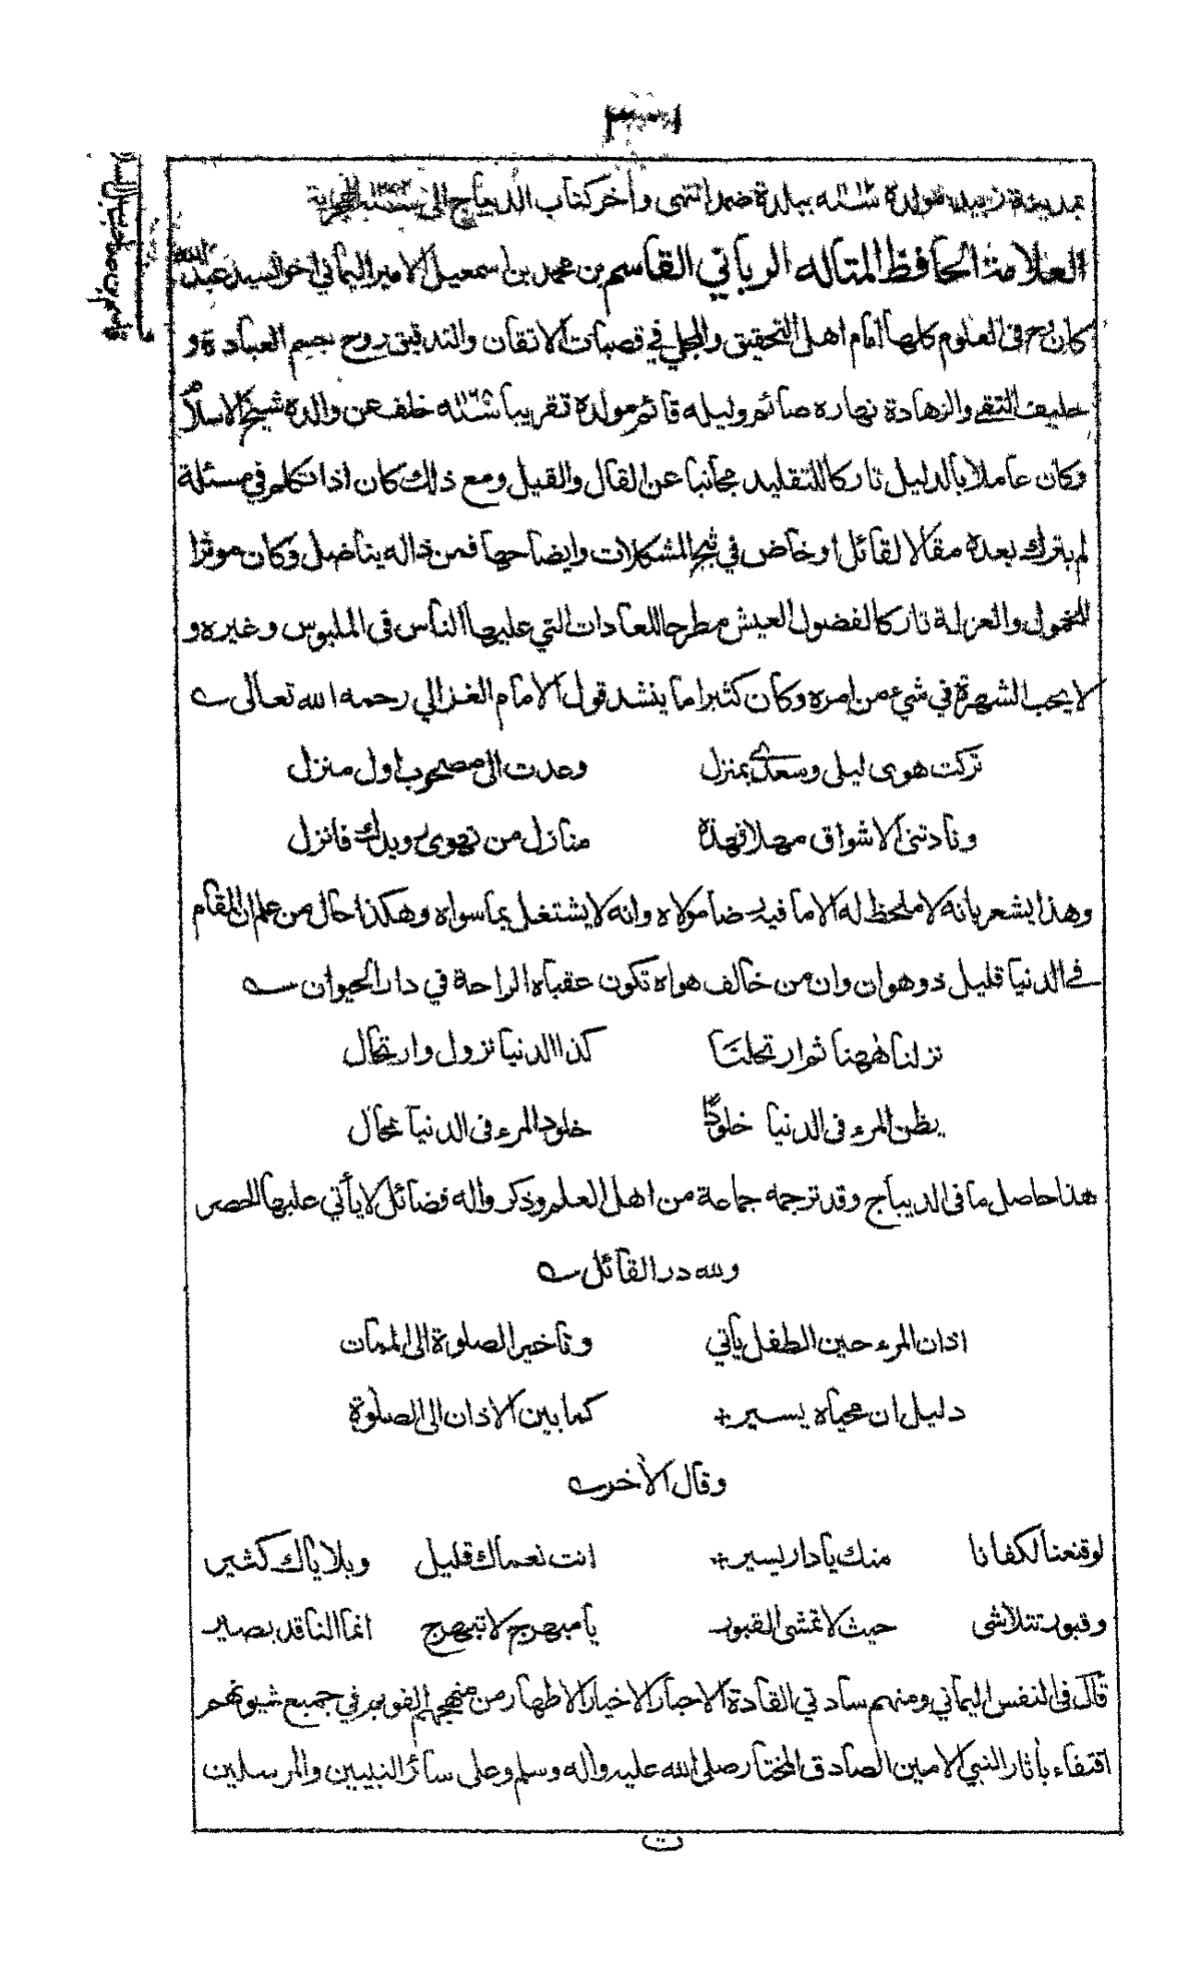 بمدينة زبيد مولده ببلدة ضمد انتهى وأخر كتاب الديباج الى
العلامة الحافظ المتاله الرباني القاسم بن محمد بن اسمعيل الامير اليماني اخو السيد عبدالله
كان رح فى العلوم كلها أمام اهل التحقيق والمجلي في قصبات الاتقان والتدقيق روح بجسم العبادة و
حليف التقى والزهادة نهاره صائم وليله قائم مولده تقريبا خلف عن والده شيخ الاسلام
وكان عاملا بالدليل تاركا للتقليد مجانبا عن القال والقيل ومع ذلك كان اذا تكلم في مسئلة
لم يترك بعده مقالا لقائل او خاض في ثبج المشكلات وايضاحها فمن ذا له يناضل وكان موثرا
للخمول والعزلة تاركا لفضول العيش مطرحا للعادات التي عليها الناس فى الملبوس وغيره و
لا يحب الشهرة في شيء من امره وكان كثيرا ما ينشد قول الامام الغزالي رحمه الله تعالى
تركت هوى ليلى وسعدى بمنزل وعدت الى مصحوب اول منزل
ونادتنى الاشواق مهلا فهذه منازل من تهوى رويدك فانزل
وهذا يشعر بانه لا ملحظ له الا ما فيه رضا مولاه وانه لا يشتغل بما سواه وهكذا حال من علم ان المقام
فى الدنيا قليل ذو هوان وان من خالف هواه تكون عقباه الراحة في دار الحيوان
نزلنا ههنا ثم ارتحلنا كذا الدنيا نزول وارتحال
يظن المرء فى الدنيا خلودًا خلود المرء فى الدنيا محال
هذا حاصل ما فى الديباج وقد ترجمه جماعة من اهل العلم وذكر واله فضائل لا يأتي عليها الحصر
ولله در القائل
اذان المرء حين الطفل يأتي وتأخير الصلوة الى الممات
دليل ان محياه يسير + كما بين الاذان الى الصلوة
وقال الأخر
لو قنعنا لكفانا منك يا دار يسير + انت نعماك قليل وبلاياك كثير
وقبور تتلاشى حيث لا تمشى القبور يا مبهرج لا تبهرج انما الناقد بصير
قال فى النفس اليماني ومنهم سادتي القادة الاحبار الاخيار الاطهار من منهجهم القويم في جميع شيونهم
اقتفاء بأثار النبي الامين الصادق المختار صلى الله عليه وأله وسلم وعلى سائر النبيين والمرسلين
ت